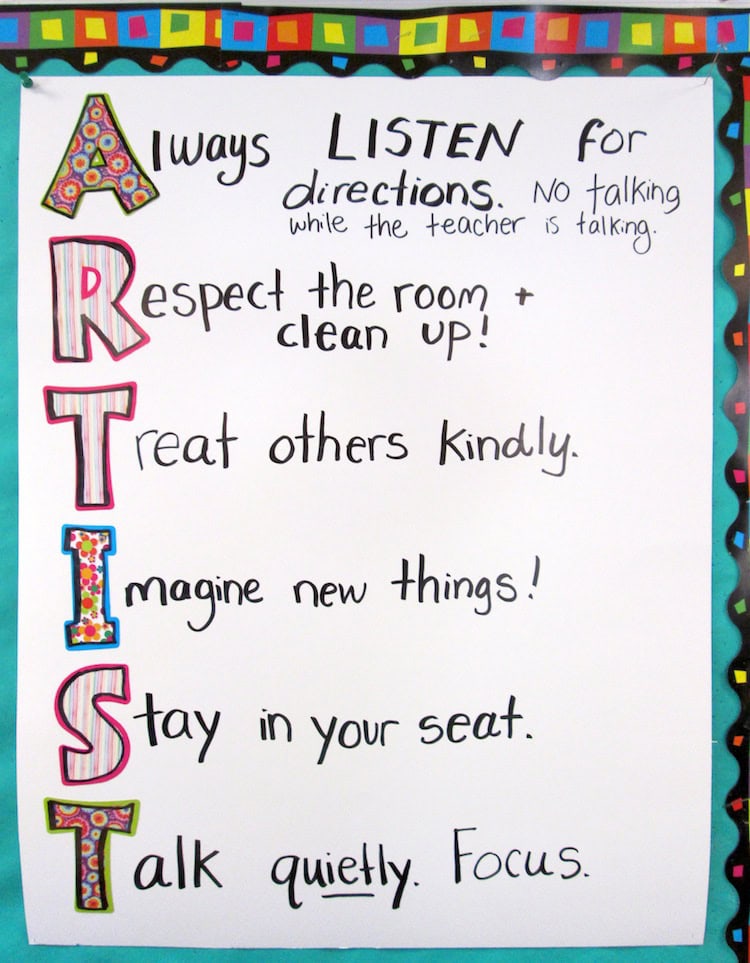 Always LISTEN for
directions. No talking
while the teacher is talking.
Respect the room +
clean up!
Treat others kindly.
Imagine new things!
Stay in your seat.
Talk quietly. Focus.